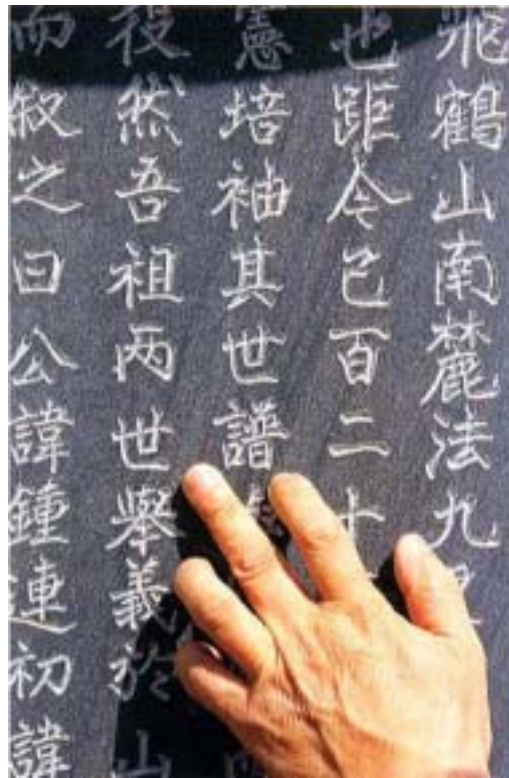 飛鶴山南麓法九
也距今已百二十
憲培袖其世譜
役然吾祖兩世舉義於山
而叙之曰公諱鍾連初諱